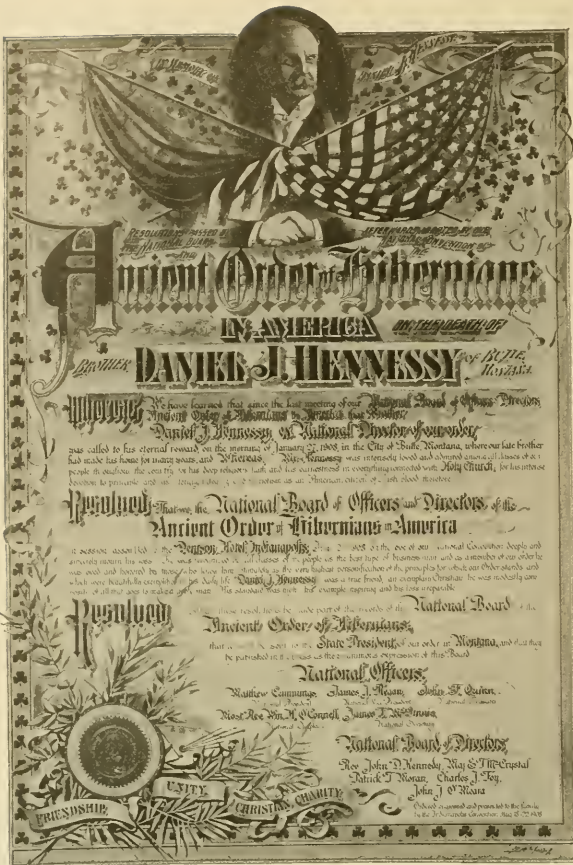 IN MEMORY OF
DANIEL J. HENNESSY
RESOLUTIONS PASSED BY
THE NATIONAL BOARD
AND
AFTERWARD ADOPTED BY OUR
NATIONAL CONVENTION OF
THE
Ancient Order of Hibernians
IN AMERICA ON THE DEATH OF
BROTHER DANIEL J. HENNESSY of BUTTE, MONTANA.
Whereas, We have learned that since the last meeting of our National Board of Officers Directors
Ancient Order of Hibernians in America that Brother,
Daniel J. Hennessy, ex National Director of our order,
was called to his eternal reward on the morning of January 27, 1908, in the City of Butte Montana, where our late brother
had made his home for many years, and Whereas, Bro. Hennessy was intensely loved and admired among all classes of our
people throughout the country for his deep religious faith and his earnestness in everything connected with Holy Church, for his intense
devotion to principle and his as an American citizen of Irish blood therefore
Resolved, That we, the National Board of Officers and Directors, of the
Ancient Order of Hibernians in America
in session assembled in the Denison Hotel, Indianapolis, 1908 on the eve of our National Convention deeply and
sincerely mourn his loss. He was by all classes of the people as the best type of business man and as a member of our order he
was loved and honored by those who knew him intimately as the very highest personification of the principles for which our Order stands and
which were beautifully exemplified in his daily life. Daniel J. Hennessy was a true friend, an exemplary Christian he was modestly
of all that goes to make a man His standard was high his example inspiring and his loss irreparable
Resolved, these resolutions be made part of the records of the National Board of the
Ancient Order of Hibernians,
that a be sent to the State President, of our order in Montana, and that they
be published in the press as the unanimous expression of this Board
National Officers,
Matthew Cummings, James J. Regan, John F. Quinn,
National President National Vice President National Treasurer
Most Rev. Wm. H. O'Connell, James T. McGinnis,
National Chaplain National Secretary
National Board of Directors,
Rev. John D. Kennedy, Maj. E. T. McCrystal
Patrick T. Moran, Charles J. Foy,
John J. O'Meara
Ordered engrossed and presented to the family
by the Indianapolis Convention 1908
FRIENDSHIP, UNITY, CHRISTIAN CHARITY